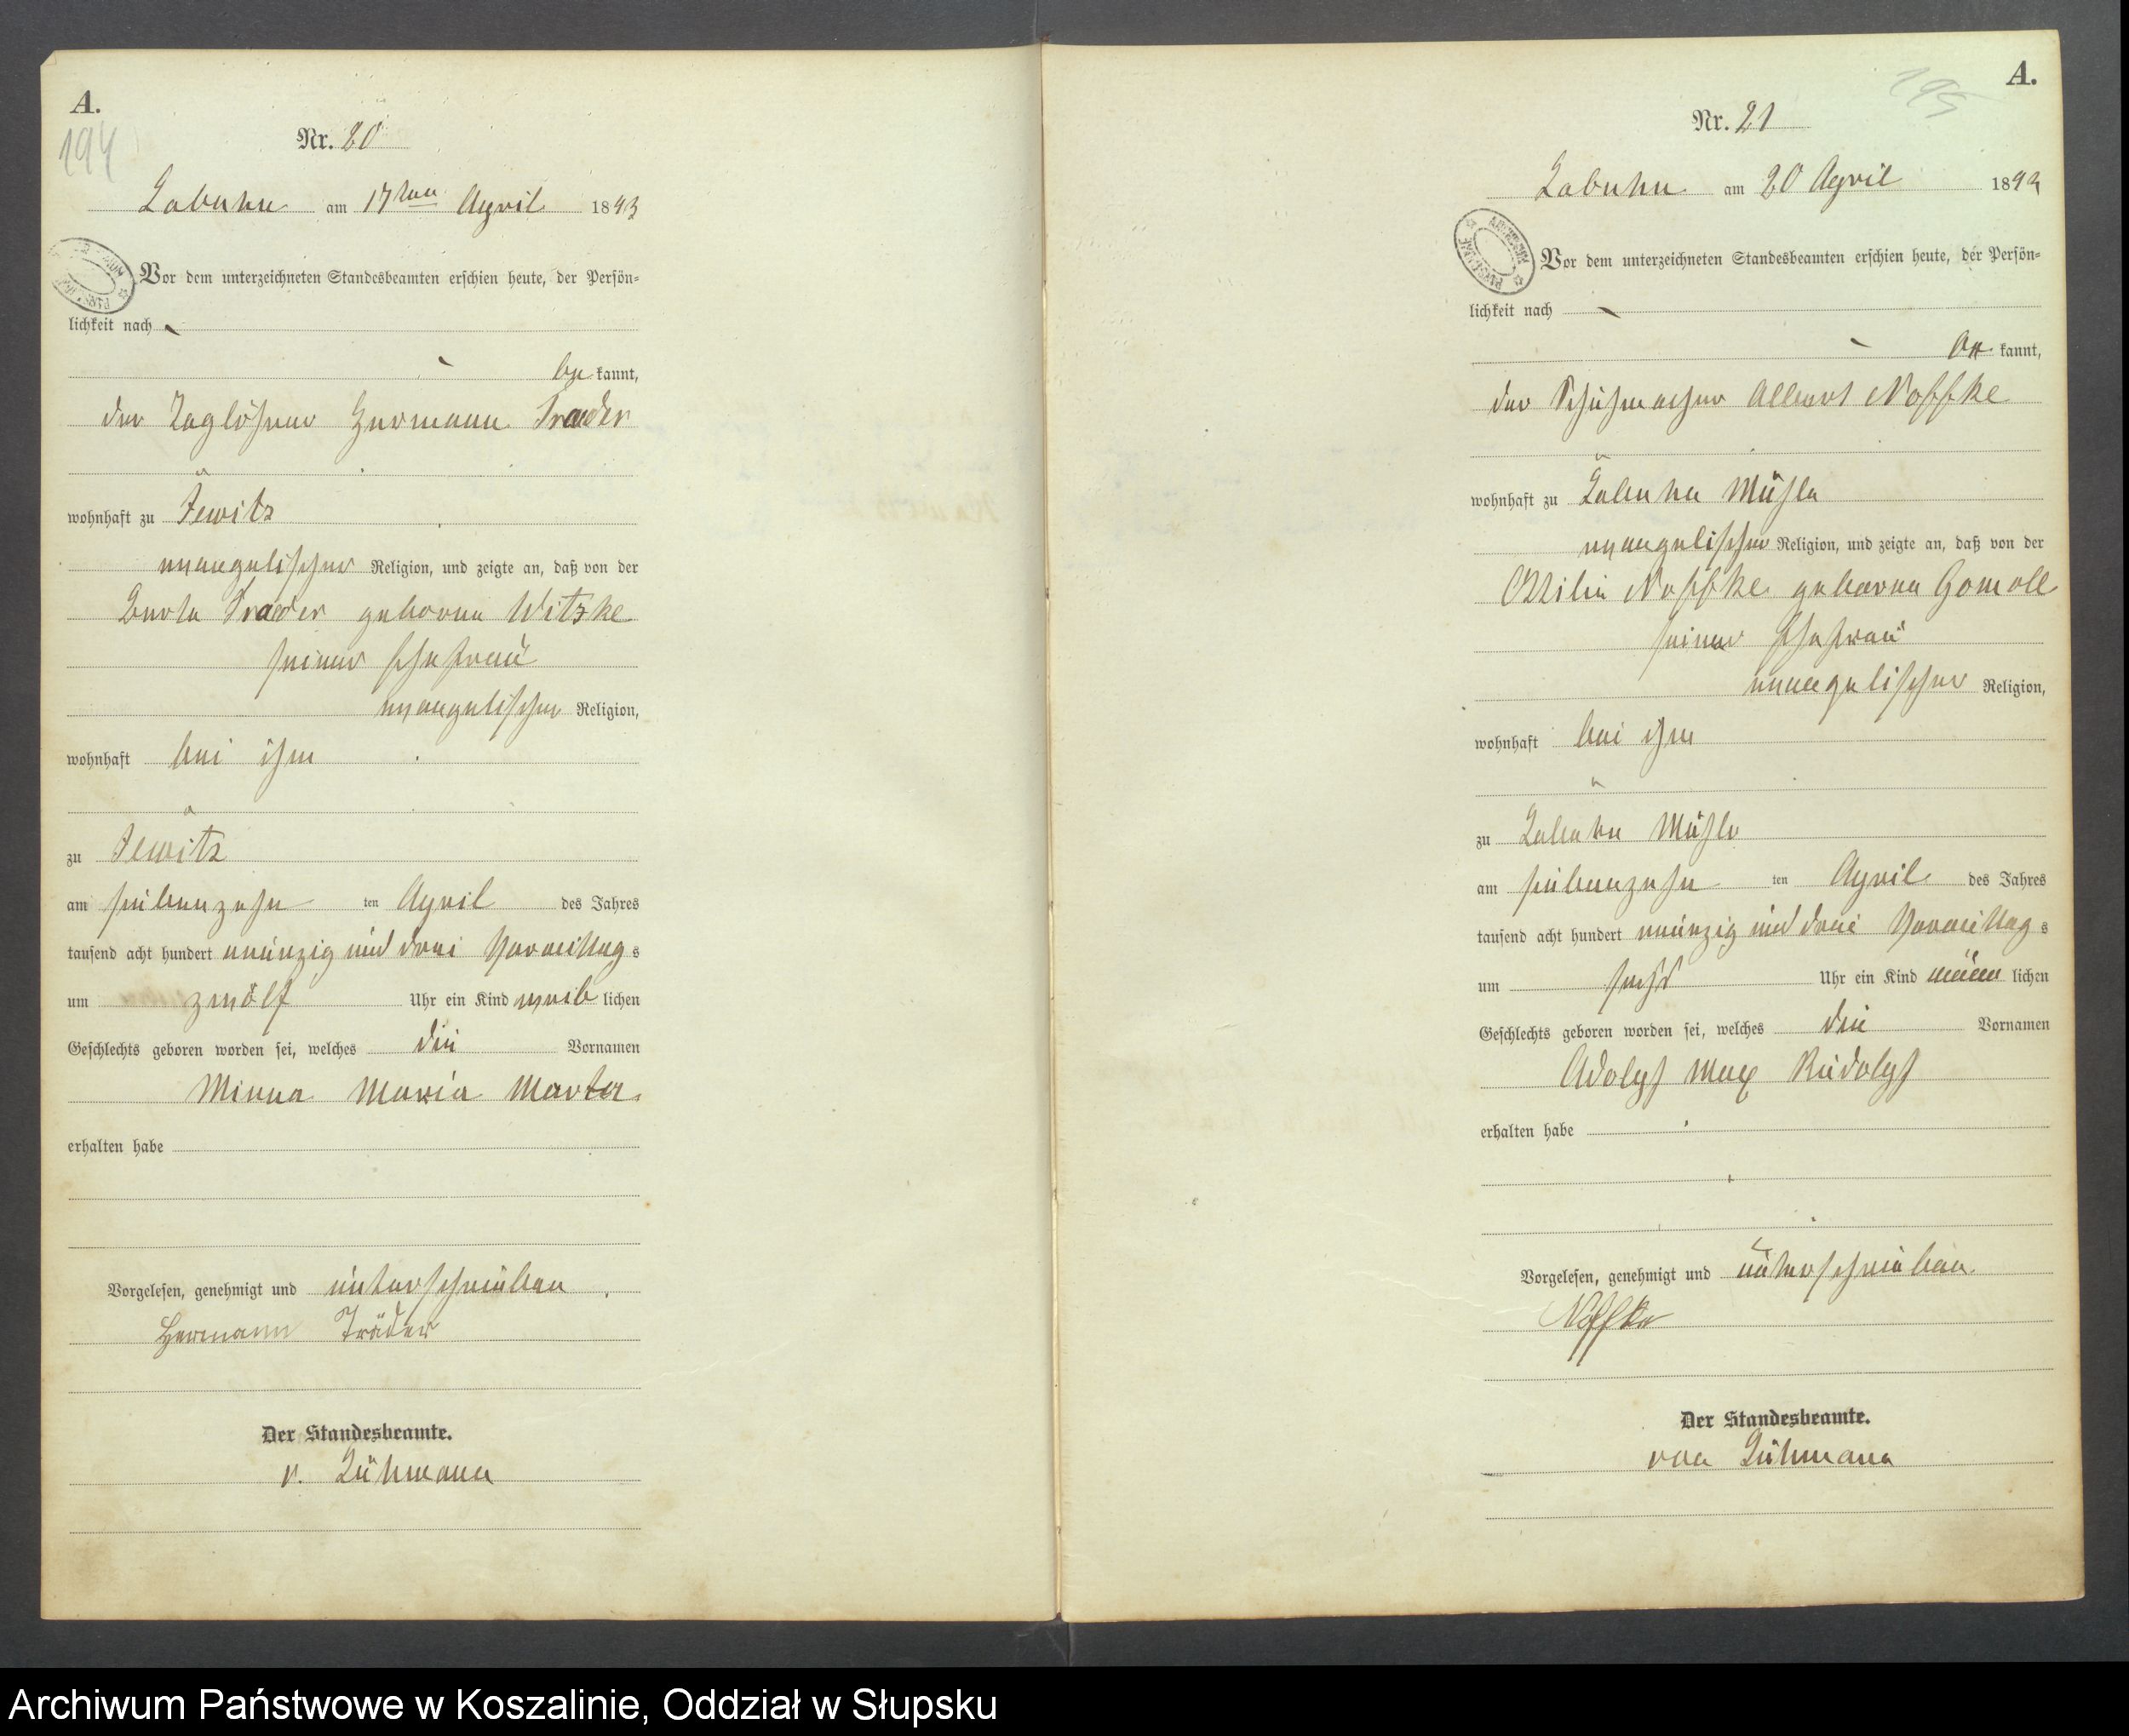 A.
194
Nr. 20
Labuhn am 17ten April 1893
Vor dem unterzeichneten Standesbeamten erschien heute, der Persön-
lichkeit nach
be kannt,
der Taglöhner Hermann Traeder
wohnhaft zu Jewitz
evangelischer Religion, und zeigte an, daß von der
Berta Traeder geborne Witzke
seiner Ehefrau
evangelischer Religion,
wohnhaft bei ihm
zu Jewitz
am siebenzehn ten April des Jahres
tausend acht hundert neunzig und drei Vormittag s
um zwölf Uhr ein Kind weib lichen
Geschlechts geboren worden sei, welches die Vornamen
Minna Maria Marta
erhalten habe
Vorgelesen, genehmigt und unterschrieben
Hermann Träder
Der Standesbeamte.
v. Lühmann
A.
195
Nr. 21
Labuhn am 20 April 1893
Vor dem unterzeichneten Standesbeamten erschien heute, der Persön-
lichkeit nach
be kannt,
der Schuhmacher Albert Noffke
wohnhaft zu Labuhn Mühle
evangelischer Religion, und zeigte an, daß von der
Ottilie Noffke geborne Gomoll
seiner Ehefrau
evangelischer Religion,
wohnhaft bei ihm
zu Labuhn Mühle
am siebenzehn ten April des Jahres
tausend acht hundert neunzig und drei Vormittag s
um sechs Uhr ein Kind männ lichen
Geschlechts geboren worden sei, welches die Vornamen
Adolf Max Rudolf
erhalten habe
Vorgelesen, genehmigt und unterschrieben.
Noffke
Der Standesbeamte.
von Lühmann
Archiwum Państwowe w Koszalinie, Oddział w Słupsku